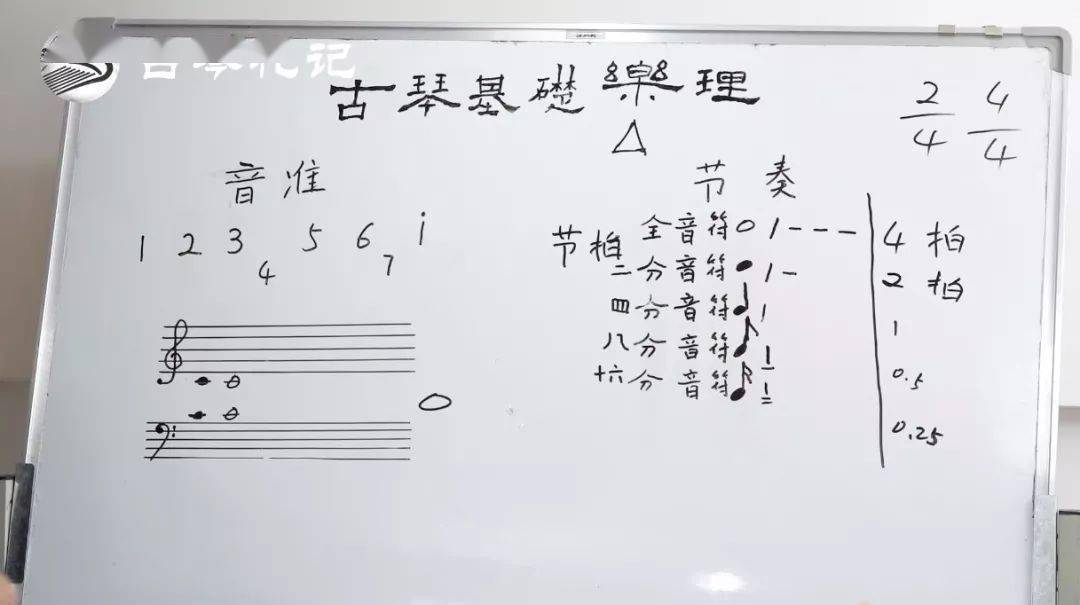 古琴札记
古琴基礎樂理
2/4 4/4
音准
节奏
1 2 3 4 5 6 7 i
节拍
全音符 1 - - - 4拍
二分音符 1 - 2拍
四分音符 1 1
八分音符 1 0.5
十六分音符 1 0.25